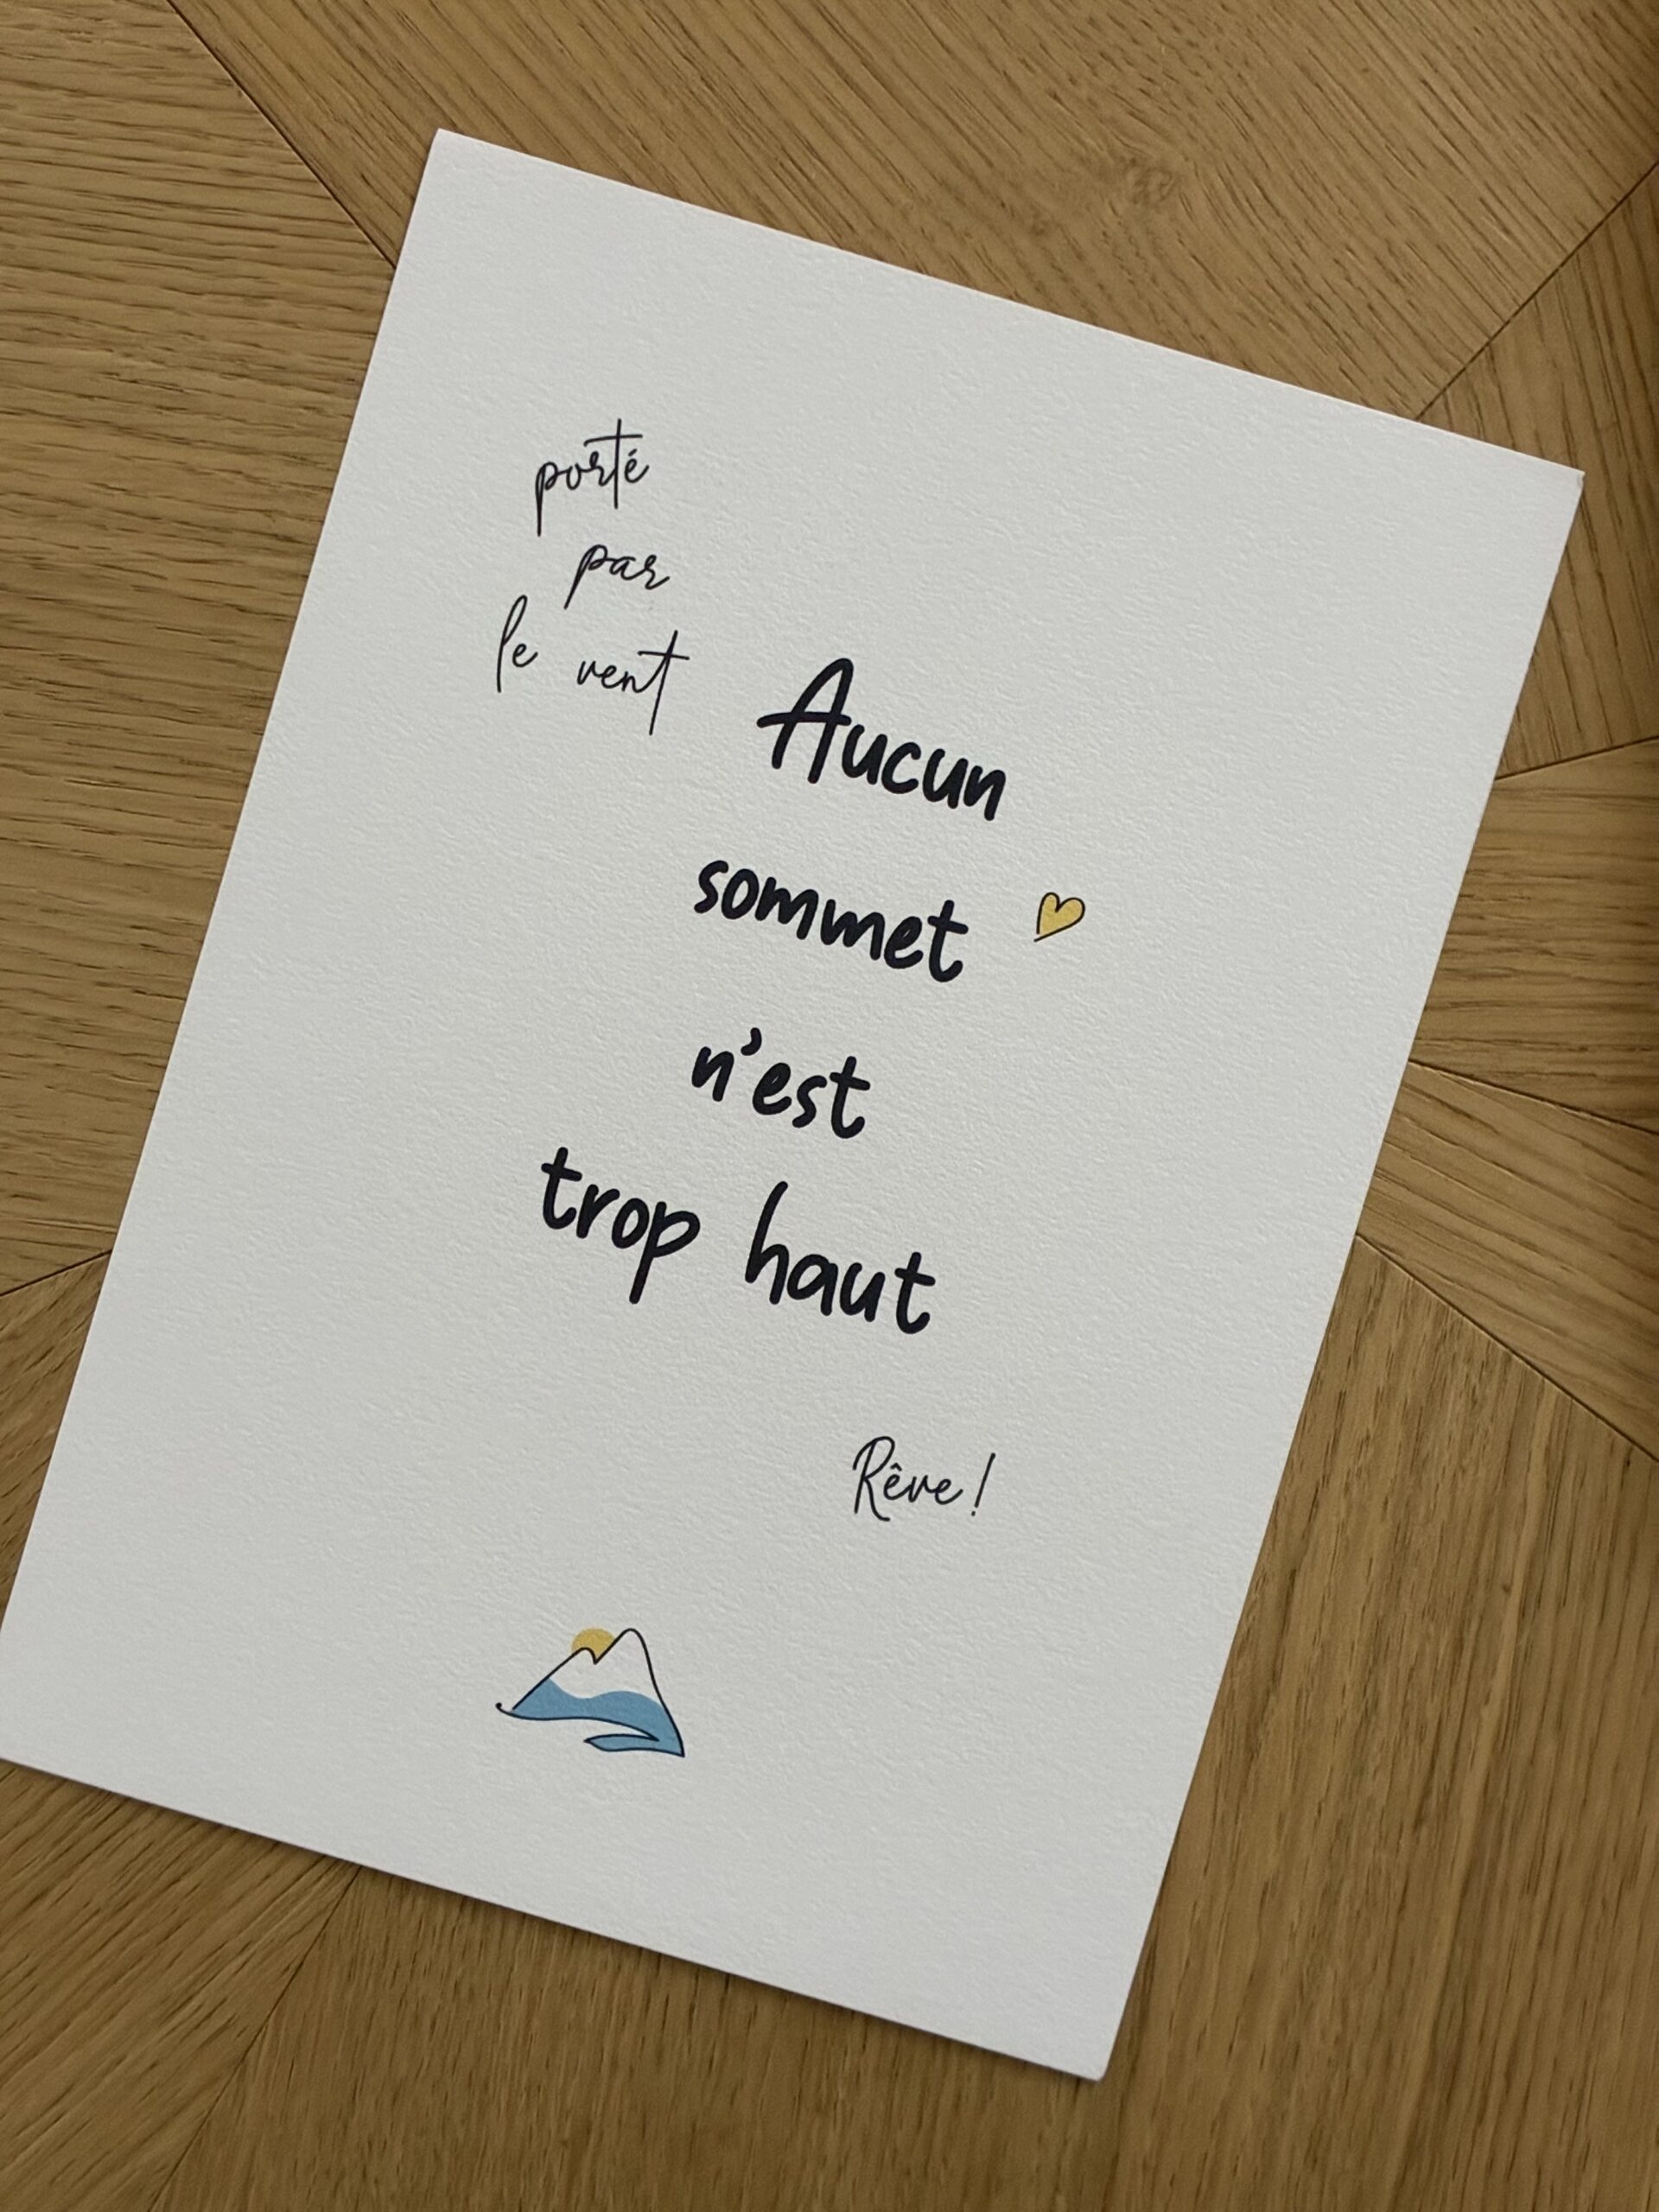 porté
par
le vent
Aucun
sommet
n'est
trop haut
Rêve !